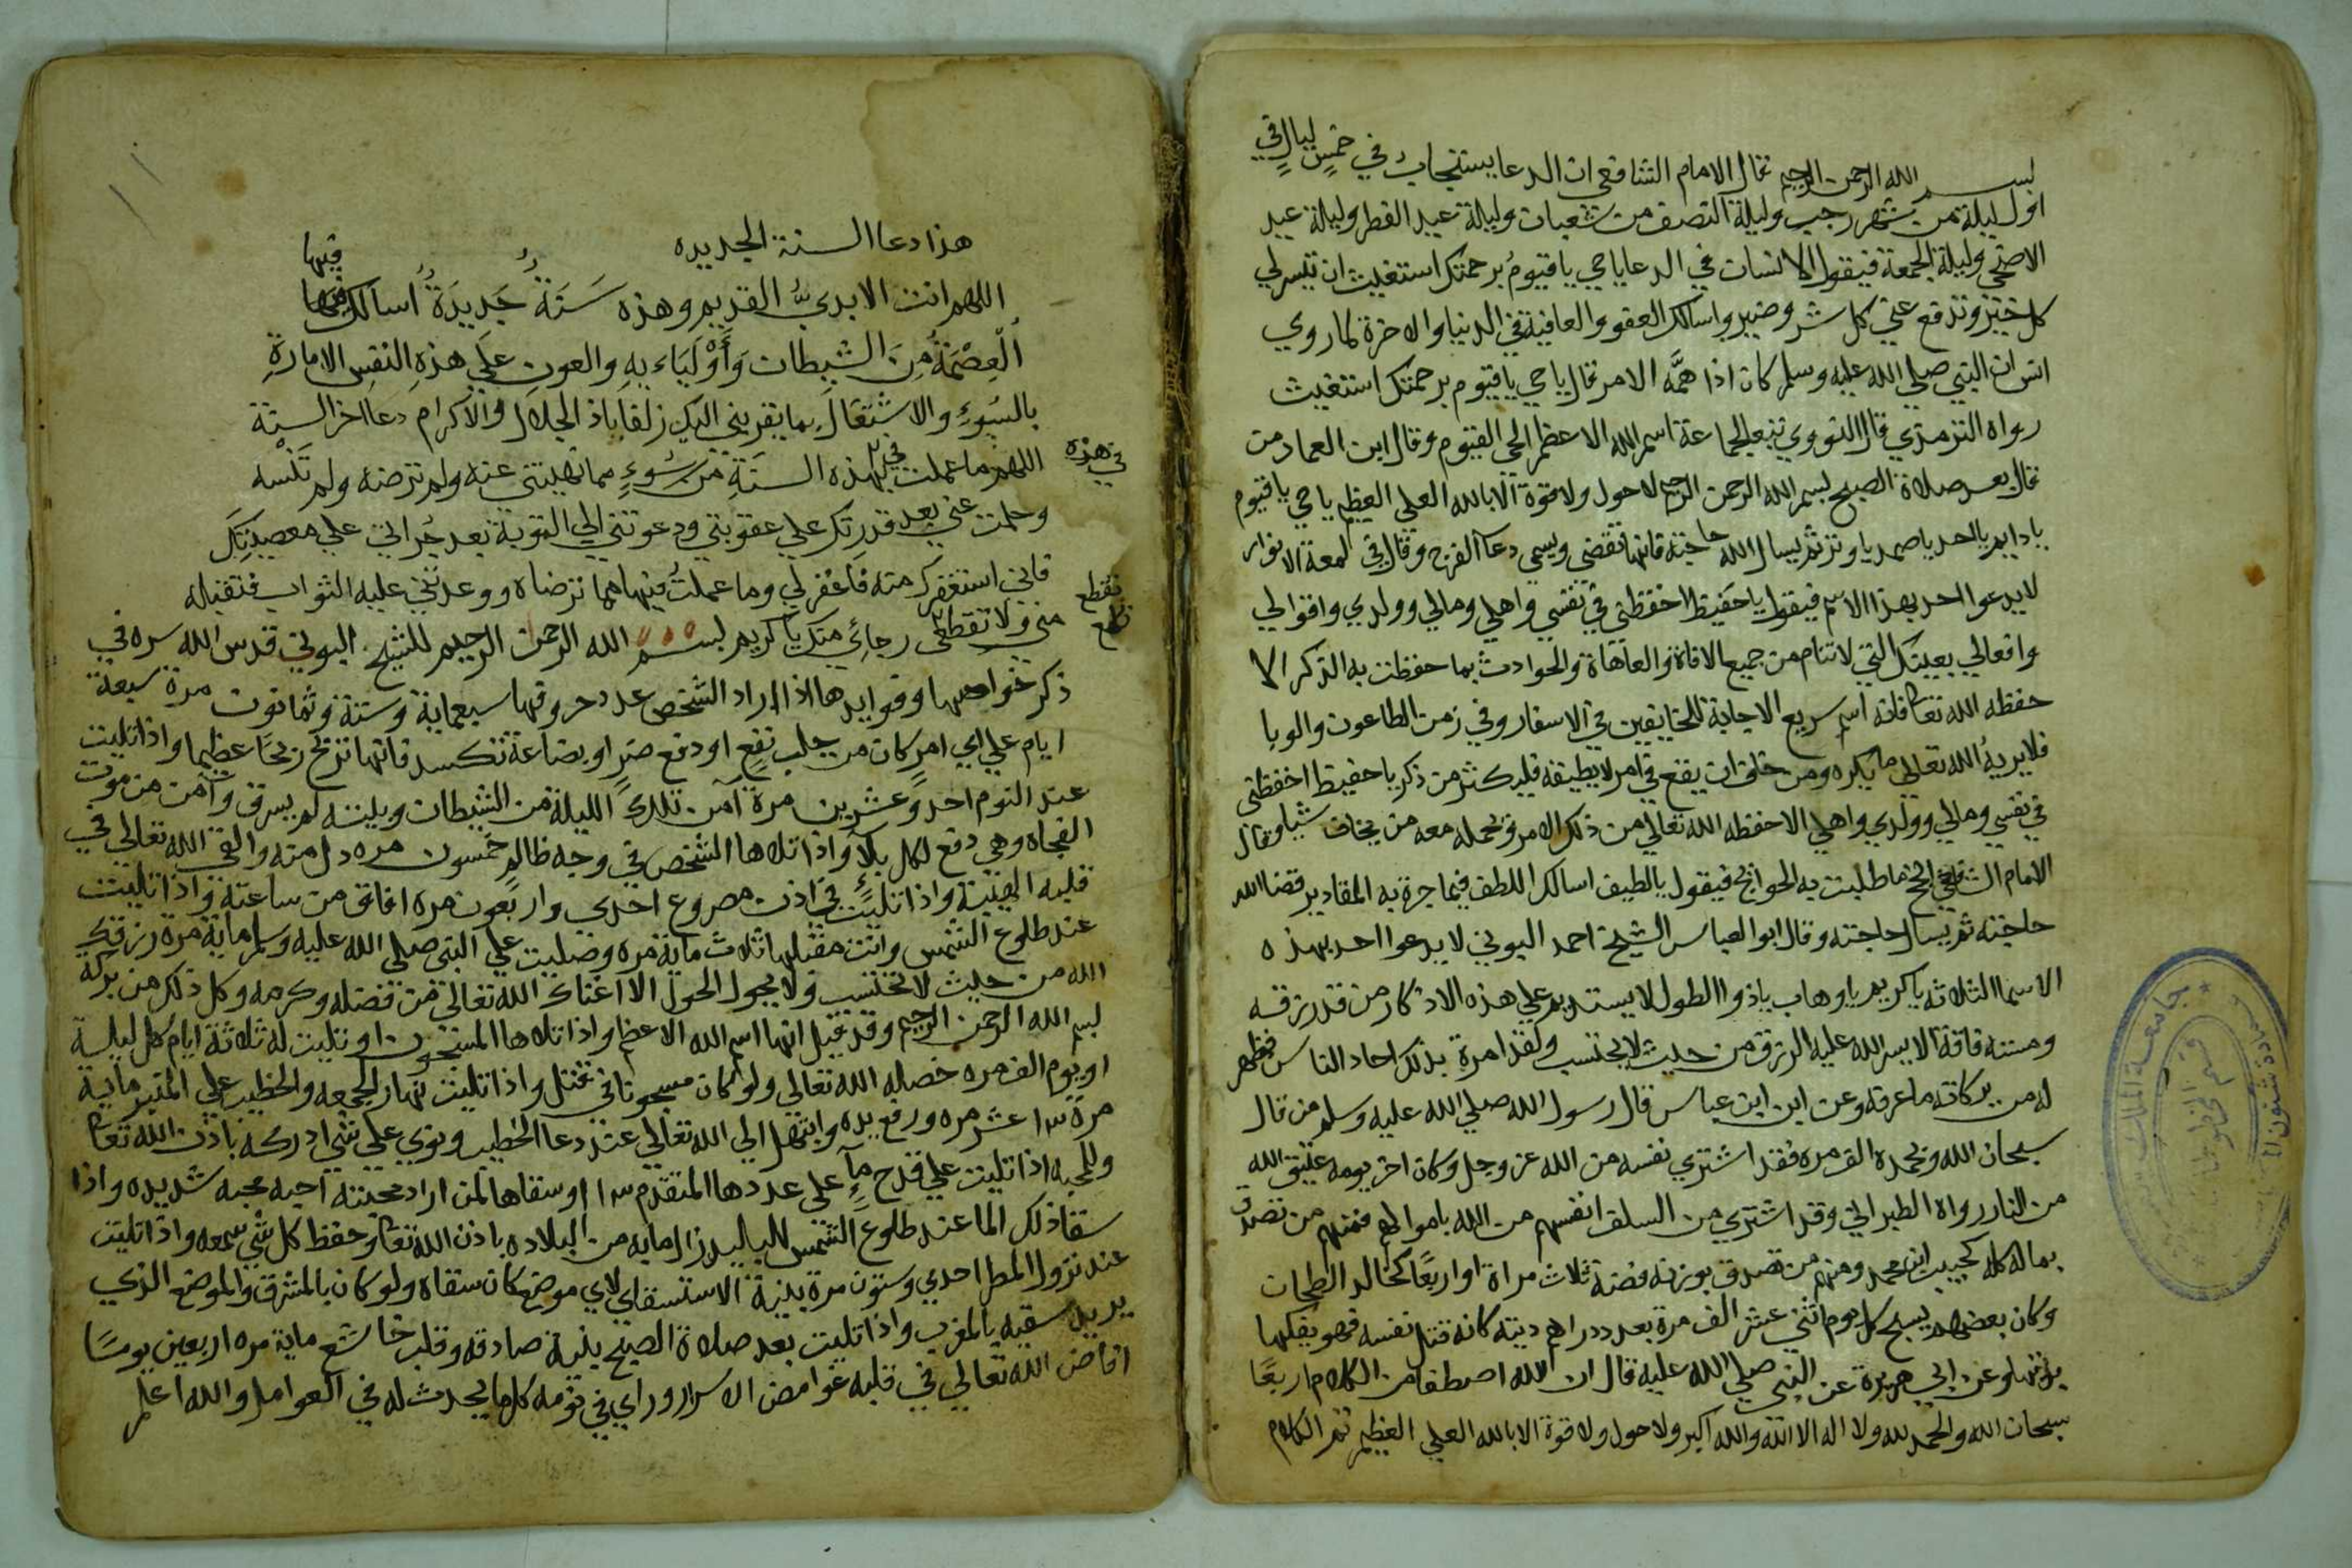 بسم الله الرحمن الرحيم قال الامام الشافعي ان الدعا يستجاب في خمس ليال في
اول ليلة من شهر رجب وليلة النصف من شعبان وليلة عيد الفطر وليلة عيد
الاضحي وليلة الجمعة فيقول الانسان في الدعا يا حي يا قيوم برحمتك استغيث ان تيسر لي
كل خير وتدفع عني كل شر وضير واسالك العفو والعافية في الدنيا والاخرة لما روي
انس ان النبي صلي الله عليه وسلم كان اذا همَّه الامر قال يا حي يا قيوم برحمتك استغيث
رواه الترمذي قال النووي تبع لجماعة اسم الله الاعظم الحي القيوم وقال ابن العماد من
قال بعد صلاة الصبح بسم الله الرحمن الرحيم لاحول ولا قوة الا بالله العلي العظيم يا حي يا قيوم
يا دايم يا احد يا صمد يا وتر ثم يسال الله حاجته فانها تقضي ويسمي دعا الفرج وقال في لمعة الانوار
لا يدعوا احد بهذا الاسم فيقول يا حفيظ احفظني في نفسي واهلي ومالي وولدي واقوالي
وافعالي بعينك التي لا تنام من جميع الافاة والعاهاة والحوادث بما حفظت به الذكر الا
حفظه الله تعا فانه اسم سريع الاجابة للخايفين في الاسفار وفي زمن الطاعون والوبا
فلا يريه الله تعالي ما يكره ومن خاف ان يقع في امر لا يطيقه فليكثر من ذكر يا حفيظ احفظني
في نفسي ومالي وولدي واهلي الا حفظه الله تعالي من ذلك الامر ويحمله معه من يخاف شيا وقال
الامام الشافعي انجح ما طلبت به الحوائج فيقول يا لطيف اسالك اللطف فيما جرة به المقادير قضا الله
حاجته ثم يسال حاجته وقال ابو العباس الشيخ احمد البوني لا يدعوا احد بهذه
الاسما الثلاثه يا كريم يا وهاب يا ذوا الطول لا يستديم علي هذه الاذكار من قدر رزقه
ومسته فاقة الا يسر الله عليه الرزق من حيث لا يحتسب ولقد امرة بذلك احاد الناس فظهر
له من بركاته ما عرفه وعن ابن عباس قال رسول الله صلي الله عليه وسلم من قال
سبحان الله وبحمده الف مره فقد اشتري نفسه من الله عز وجل وكان اخر يومه عتيق الله
من النار رواه الطبراني وقد اشتري من السلف انفسهم من الله باموالهم فمنهم من تصدق
بماله كله كحبيب ابن محمد ومنهم من تصدق بوزنه فضة ثلاث مراة او اربعًا كخالد الطحان
وكان بعضهم يسبح كل يوم اثني عشر الف مرة بعدد دراهم ديته كانه قتل نفسه فهو يفكها
بذلك وعن ابي هريرة عن النبي صلي الله عليه قال ان الله اصطفا من الكلام اربعًا
سبحان الله والحمد لله ولا اله الا الله والله اكبر ولا حول ولا قوة الا بالله العلي العظيم تم الكلام
هذا دعا السنة الجديده
فيها
اللهم انت الابديُّ القديم وهذه سَنَةٌ جَديدَةٌ اسالك فيها
العِصْمَةُ مِنَ الشيطان وَأَوْلَيَاءيهِ والعون علَي هذهِ النفس الامارةِ
بالسُوءِ والاشتغالَ بما يقربني اليك زلفا يا ذا الجلال والاكرام دعا اخر السنة
في هذه
اللهم ما عملت في هذه السنَةِ من سُوءٍ مما نهيتني عنه ولم ترضه ولم تَنْسه
وحلمت عني بعد قدرتك علي عقوبتي ودعوتني الي التوبة بعد جُراتي علي معصيتِكَ
فاني استغفرك منه فاغفر لي وما عملتُ فيها مما ترضاه ووعدتني عليه الثواب فتقبله
تقطع
مني ولا تقطع رجائِي منك يا كريم بسم الله الرحمن الرحيم للشيخ البوني قدس الله سره في
ذكر خواصها وفوايدها اذا اراد الشخص عدد حروفها سبعماية وستة وثمانون مرة سبعة
ايام علي اي امر كان من جلب نفعٍ او دفع ضرٍ او بضاعة تكسد فانها تربح ربحًا عظيما واذا تليت
عند النوم احد وعشرين مرة آمن تلك الليلة من الشيطان وبيته لم يسرق وآمن من موت
الفجاه وهي دفع لكل بلآءٍ واذا تلاها الشخص في وجه ظالم خمسون مره دل منه والقي الله تعالي في
قلبه الهيبة واذا تليت في اذن مصروع احدي واربعون مره افاق من ساعته واذا تليت
عند طلوع الشمس وانت مقبلها ثلاث ماية مره وصليت علي النبي صلي الله عليه وسلم ماية مرة رزقك
الله من حيث لا تحتسب ولا يحول الحول الا اغناك الله تعالي من فضله وكرمه وكل ذلك من بركة
بسم الله الرحمن الرحيم وقد قيل انها اسم الله الاعظم واذا تلاها المسجون او تليت له ثلاثة ايام كل ليلة
او يوم الف مره خصله الله تعالي ولو كان مسجونا في قتل واذا تليت نهار الجمعه والخطيب علي المنبر ماية
مرة ١٣ عشر مره ورفع يده وابتهل الي الله تعالي عند دعا الخطيب ونوي علي شي ادركه باذن الله تعا
وللمحبه اذا تليت علي قدح مآءٍ علي عددها المتقدم وسقاها لمن اراد محبته احبه محبه شديده واذا
سقا ذلك الما عند طلوع الشمس للبليد زال ما به من البلاده باذن الله تعا وحفظ كل شي سمعه واذا تليت
عند نزول المطر احدي وستون مرة بنية الاستسقاي لاي موضع كان سقاه ولو كان بالمشرق والموضع الذي
يريد سقيه بالمغرب واذا تليت بعد صلاة الصبح بنية صادقه وقلب خاشع ماية مره اربعين يومًا
افاض الله تعالي في قلبه غوامض الاسرار وراي في نومه كل ما يحدث له في العوامل والله اعلم